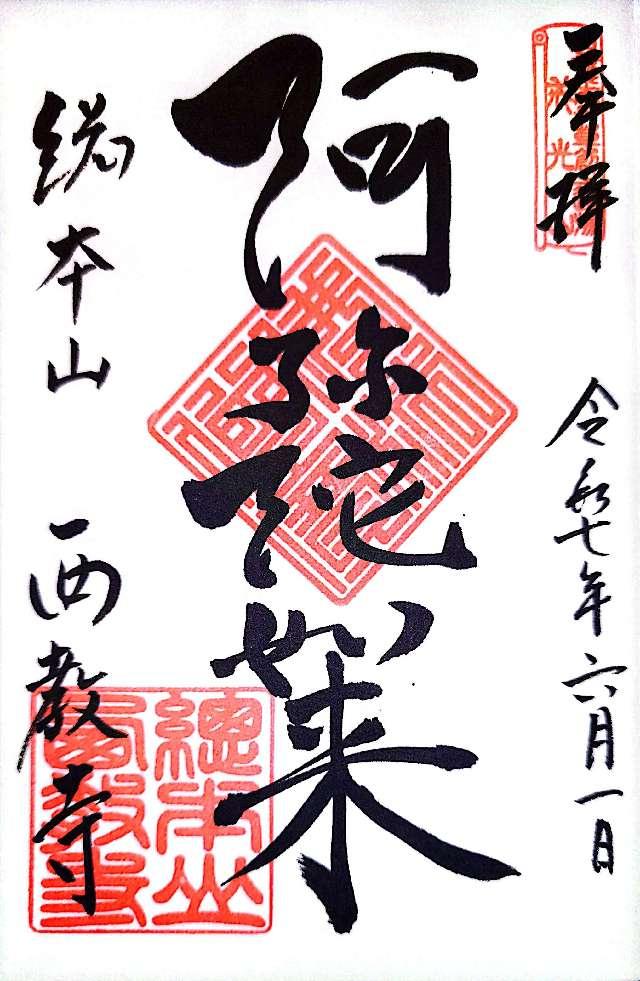 奉拝
令和七年六月一日
阿弥陀如来
総本山 西教寺
總本山
西教寺